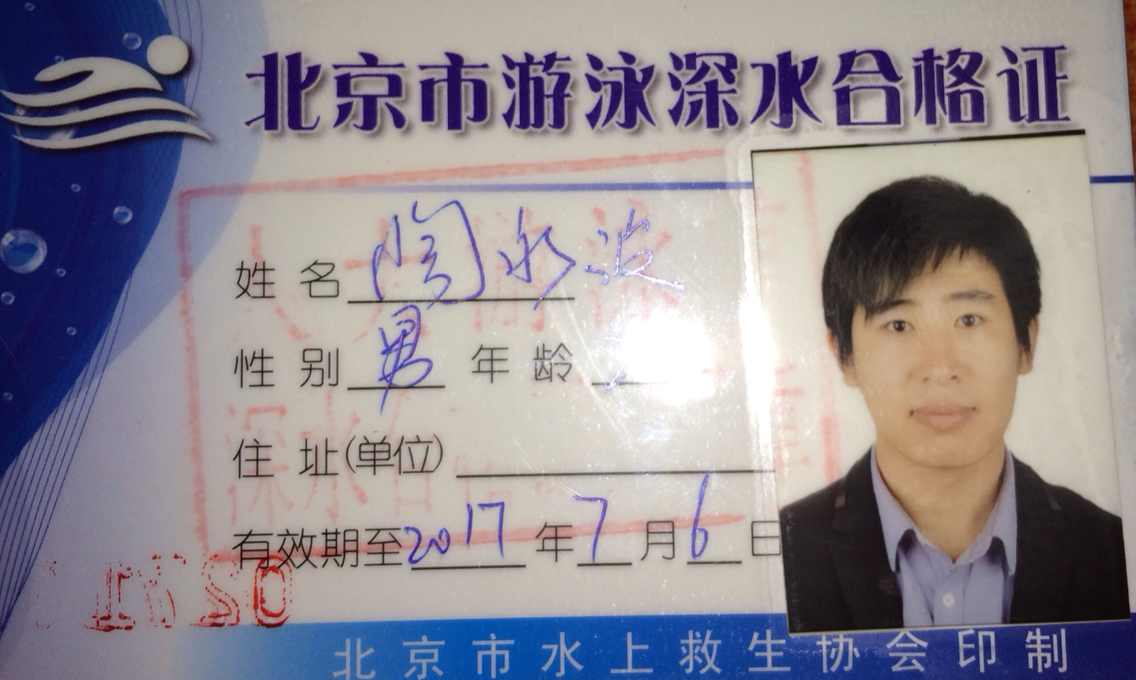 北京市游泳深水合格证
姓 名 陶永波
性 别 男 年 龄
住 址(单位)
有效期至2017年7月6日
北京市水上救生协会印制